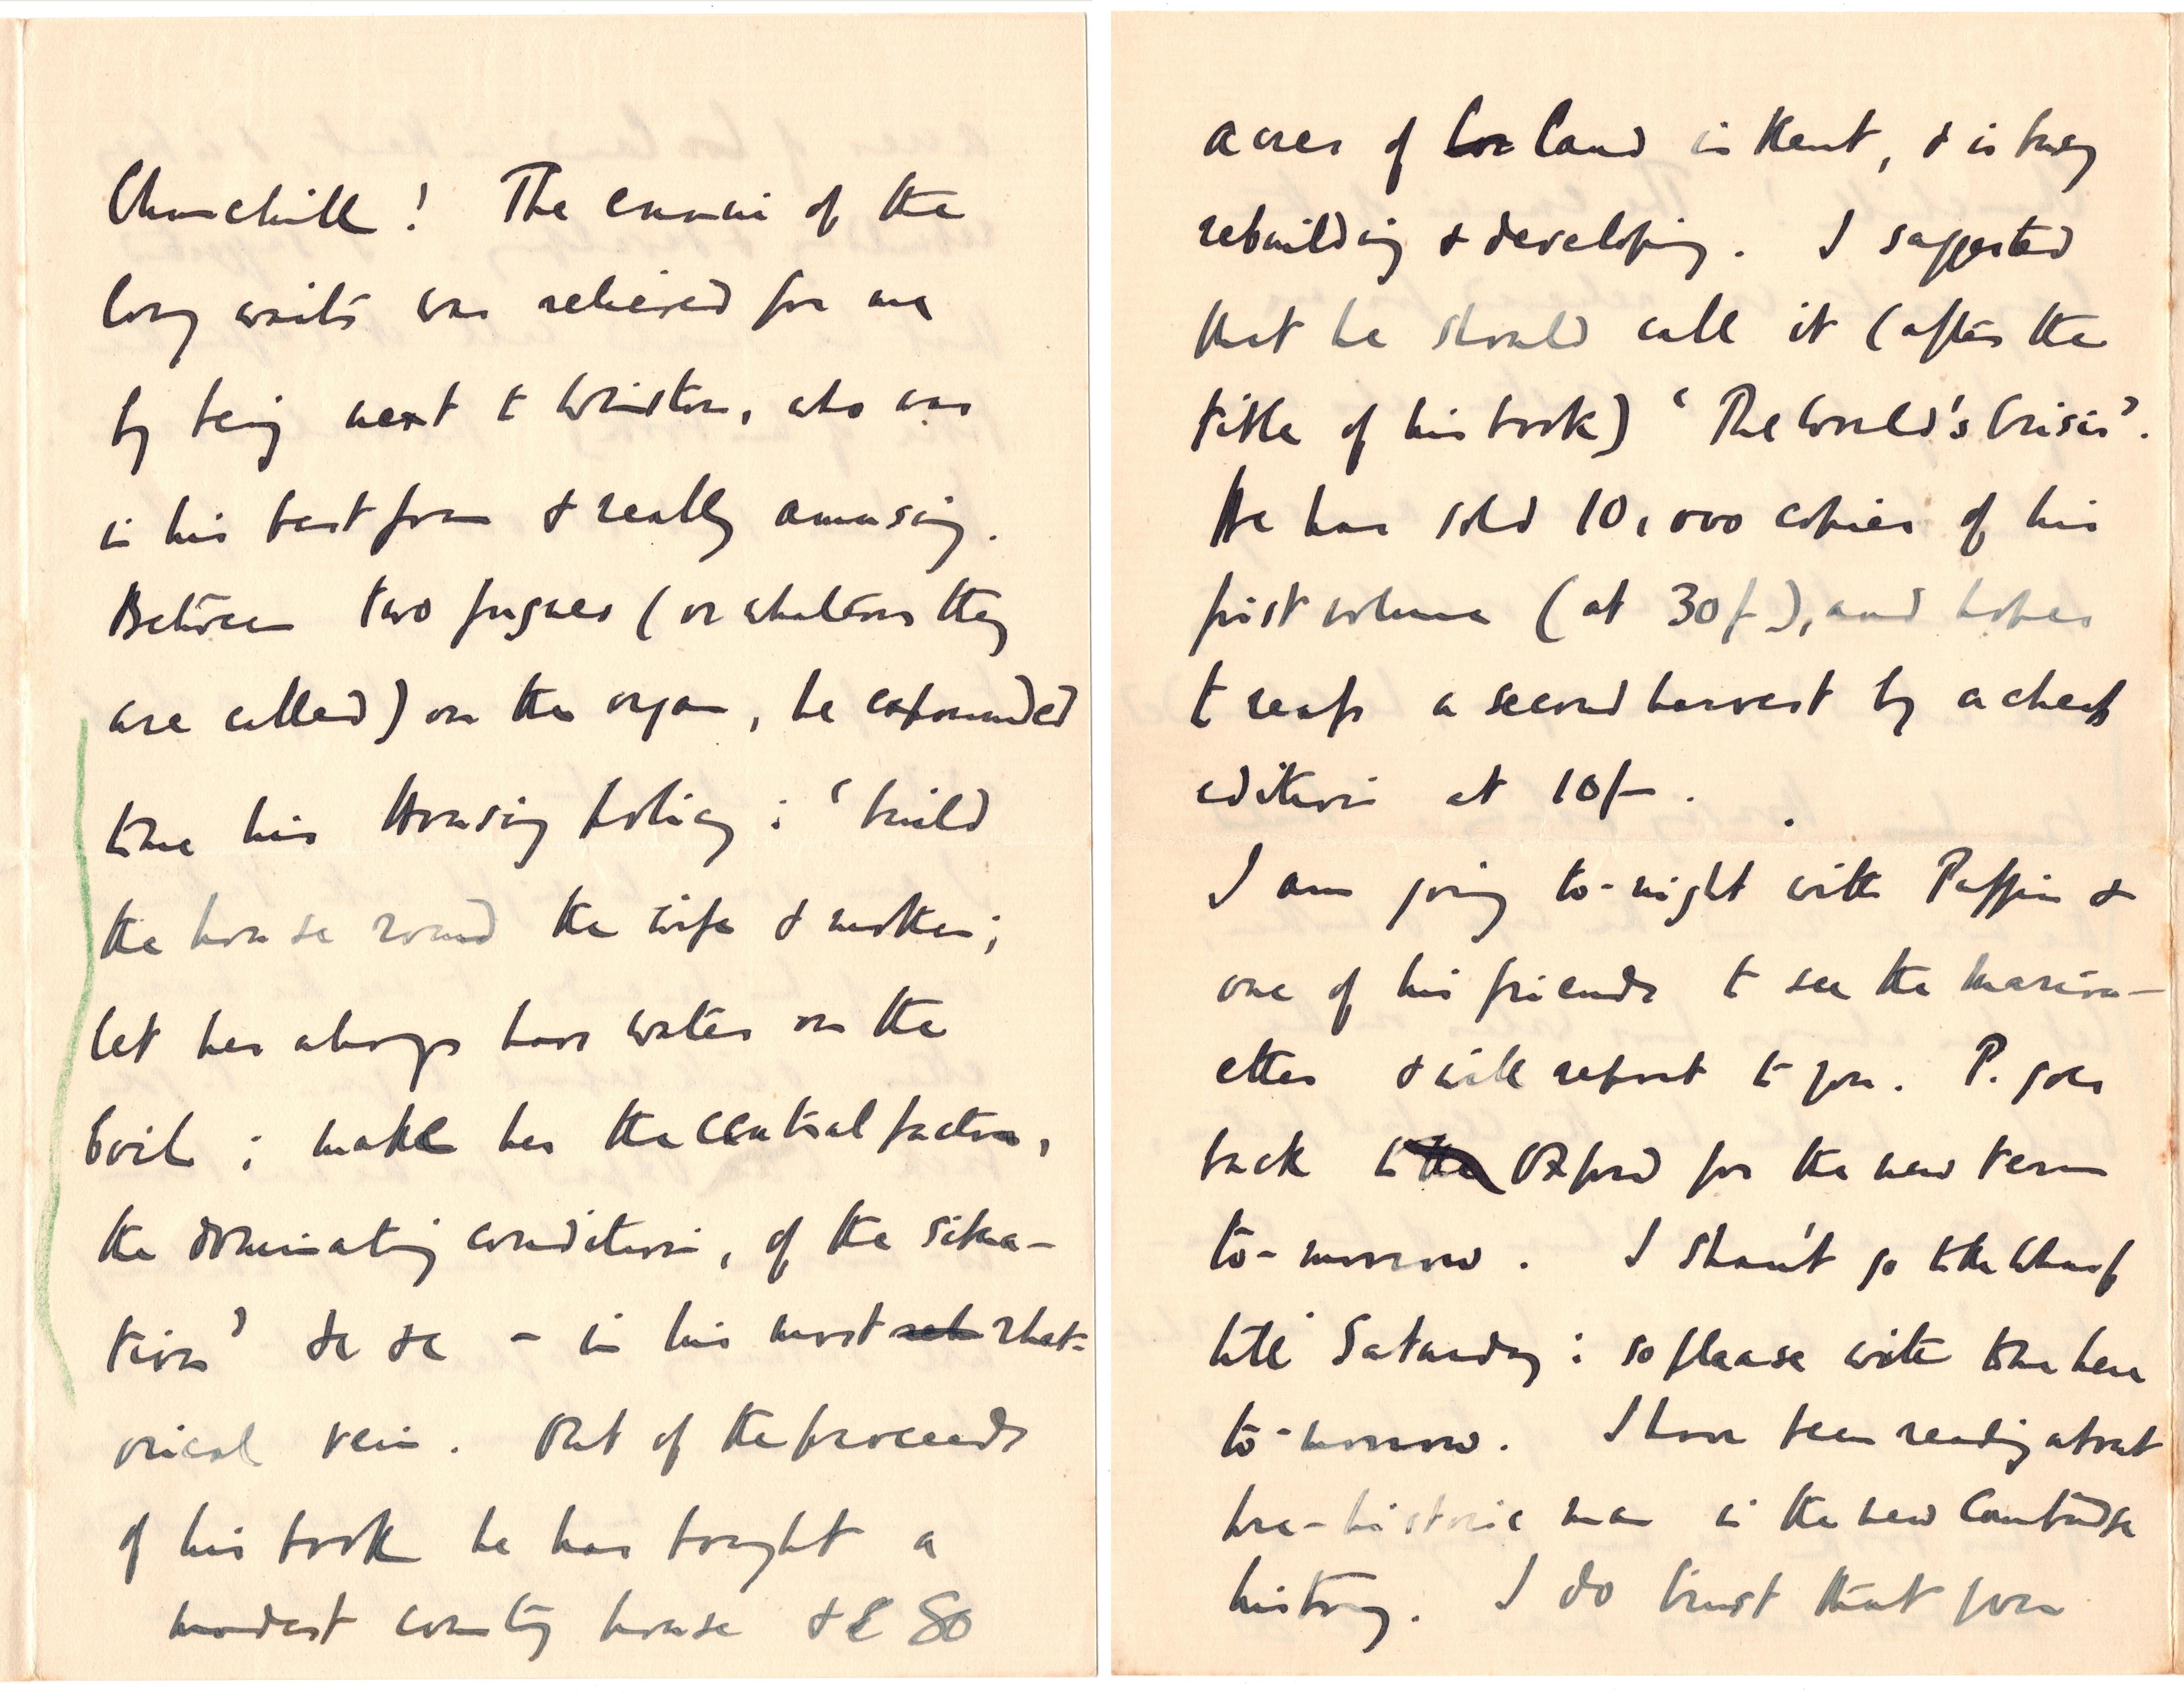 Churchill! The ennui of the
long waits was relieved for me
by being next to Winston, who was
in his best form & really amusing.
Between two fugues (or whatever they
are called) on the organ, he expounded
to me his Housing policy: 'build
the house round the wife & mother;
let her always have water on the
boil; make her the central factor,
the dominating condition, of the situa-
tion' &c &c - in his most reh rhet-
orical vein. Out of the proceeds
of his book he has bought a
modest country house & 80
acres of lan land in Kent, & is busy
rebuilding & developing. I suggested
that he should call it (after the
title of his book) 'The World's Crisis'.
He has sold 10,000 copies of his
first volume (at 30/-), and hopes
to reap a second harvest by a cheap
edition at 10/-.
I am going to-night with Puffin &
one of his friends to see the marion-
ettes & will report to you. P. goes
back to the Oxford for the new term
to-morrow. I shan't go to the Wharf
till Saturday: so please write to me here
to-morrow. I have been reading about
pre-historic man in the new Cambridge
history. I do trust that you